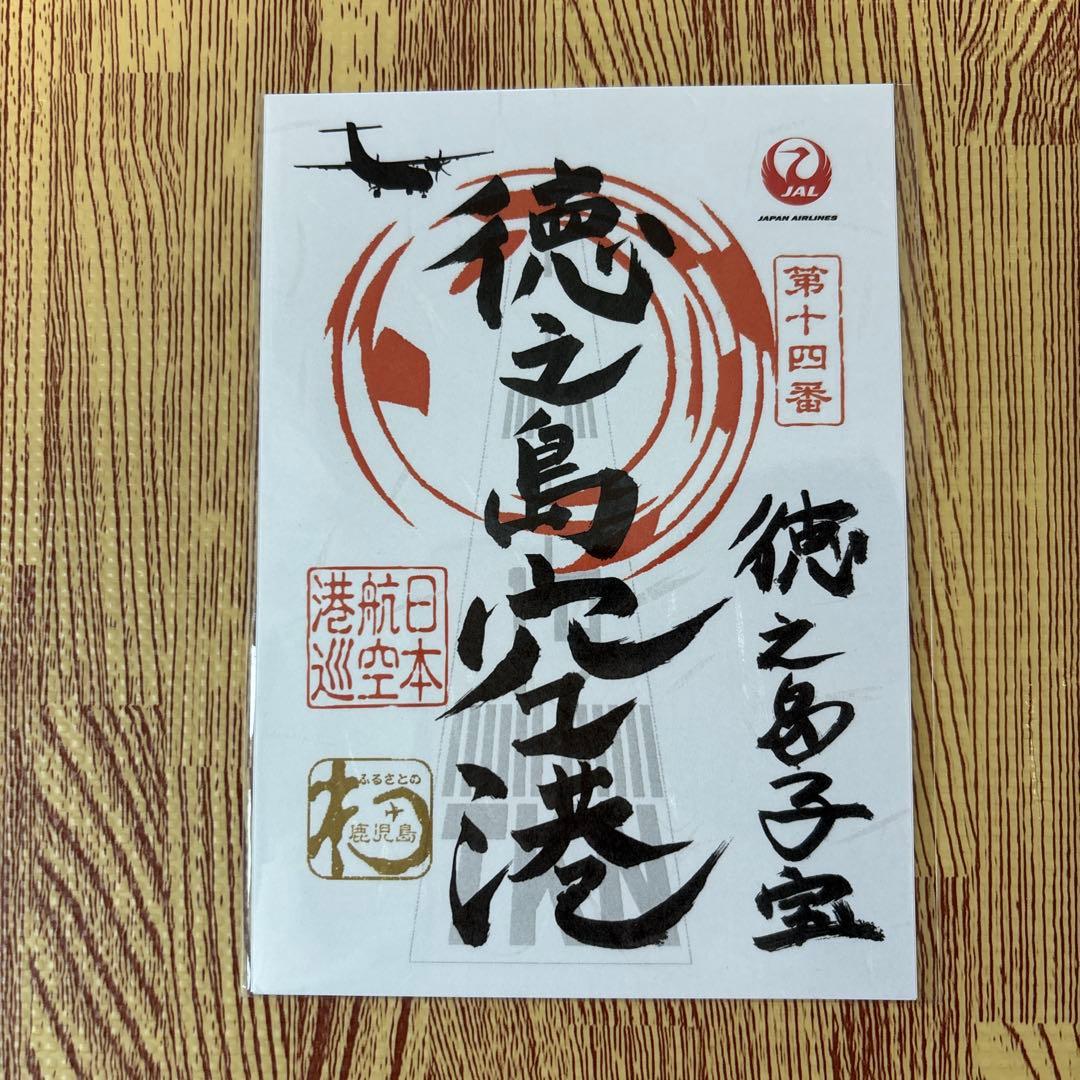 JAL
JAPAN AIRLINES
第十四番
徳之島空港
徳之島子宝
日本
航空
港巡
ふるさとの
鹿児島